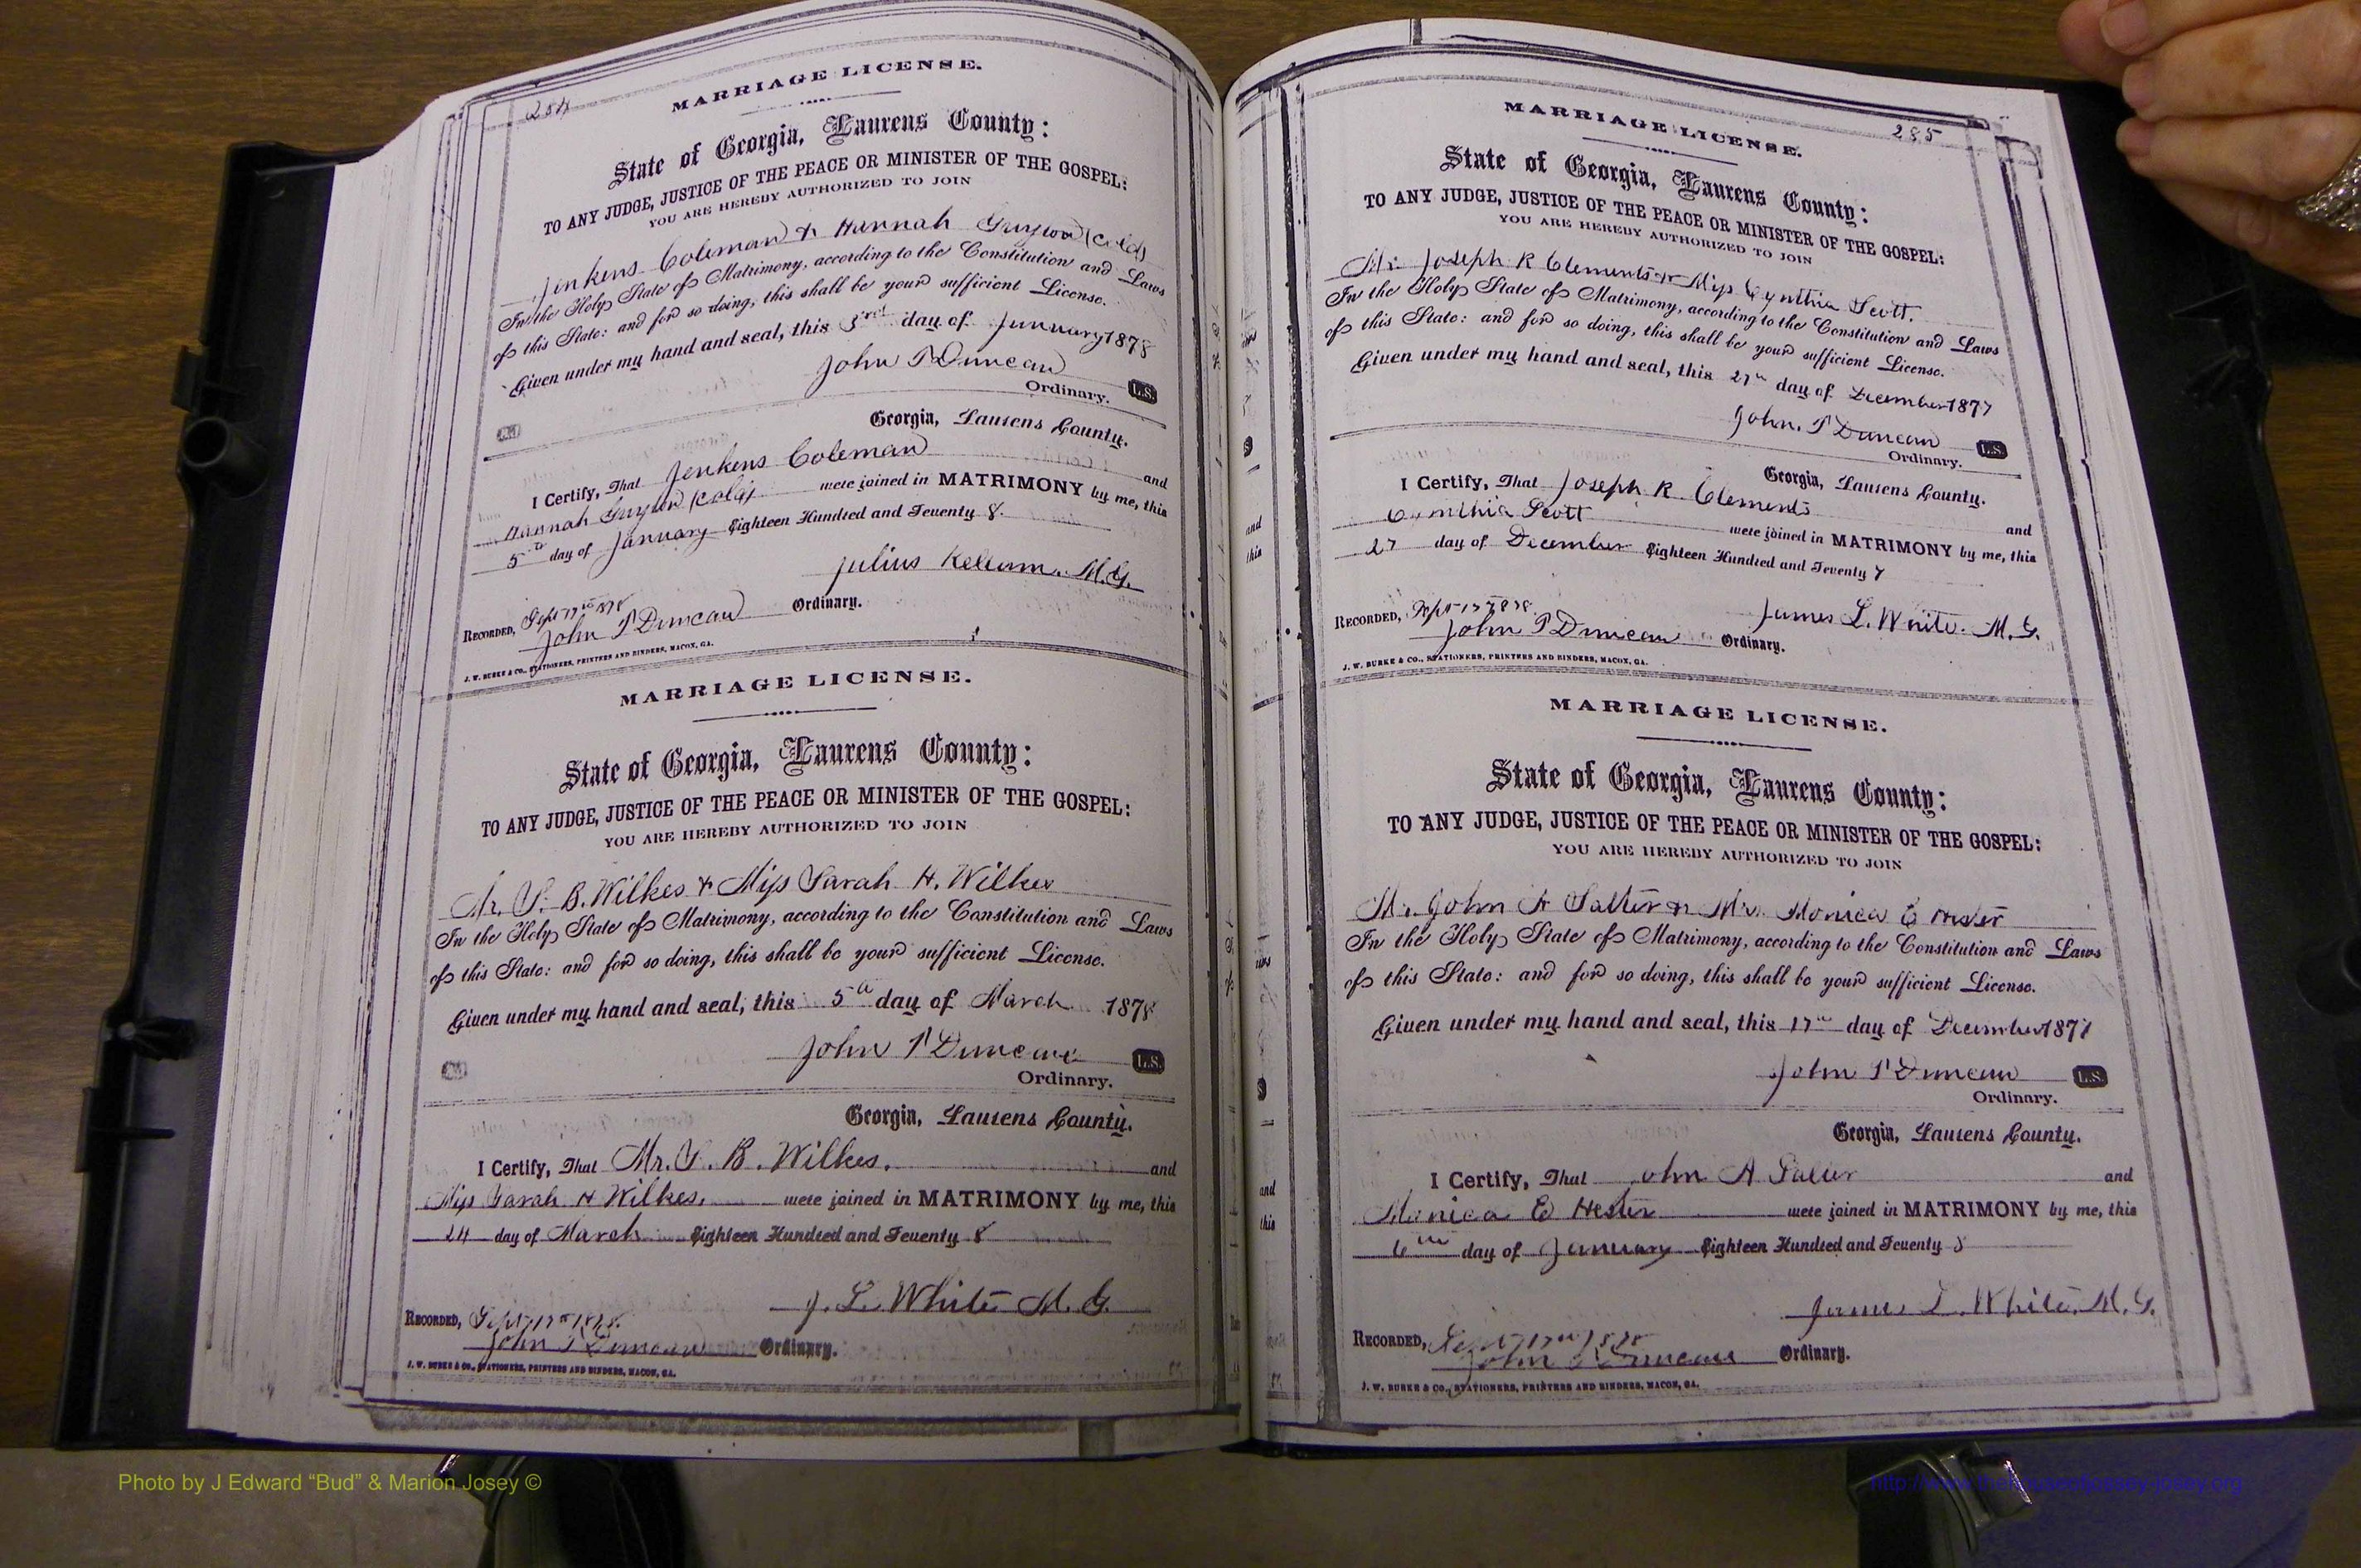 284
MARRIAGE LICENSE.
State of Georgia, Laurens County:
TO ANY JUDGE, JUSTICE OF THE PEACE OR MINISTER OF THE GOSPEL:
YOU ARE HEREBY AUTHORIZED TO JOIN
Jenkens Coleman & Hannah Guyton (cold)
In the Holy State of Matrimony, according to the Constitution and Laws
of this State: and for so doing, this shall be your sufficient License.
Given under my hand and seal, this 3rd day of January 1878
John T Duncan
Ordinary. L.S.
Georgia, Laurens County.
I Certify, That Jenkens Coleman and
Hannah Guyton (cold) were joined in MATRIMONY by me, this
5th day of January Eighteen Hundred and Seventy 8.
Julius Kellum. M.G.
RECORDED, Sept 17th 1878
John T Duncan Ordinary.
J. W. BURKE & CO., STATIONERS, PRINTERS AND BINDERS, MACON, GA.
MARRIAGE LICENSE.
State of Georgia, Laurens County:
TO ANY JUDGE, JUSTICE OF THE PEACE OR MINISTER OF THE GOSPEL:
YOU ARE HEREBY AUTHORIZED TO JOIN
Mr. B. Wilkes & Miss Sarah H. Wilkes
In the Holy State of Matrimony, according to the Constitution and Laws
of this State: and for so doing, this shall be your sufficient License.
Given under my hand and seal, this 5th day of March 1878
John T Duncan
L.S.
Ordinary.
Georgia, Laurens County.
I Certify, That Mr. B. Wilkes. and
Miss Sarah H Wilkes. were joined in MATRIMONY by me, this
24 day of March Eighteen Hundred and Seventy 8
J. L. White M. G.
RECORDED, Sept 17th 1878.
John T Duncan Ordinary.
J. W. BURKE & CO., STATIONERS, PRINTERS AND BINDERS, MACON, GA.
285
MARRIAGE LICENSE.
State of Georgia, Laurens County:
TO ANY JUDGE, JUSTICE OF THE PEACE OR MINISTER OF THE GOSPEL:
YOU ARE HEREBY AUTHORIZED TO JOIN
Mr Joseph R Clements & Miss Cynthia Scott.
In the Holy State of Matrimony, according to the Constitution and Laws
of this State: and for so doing, this shall be your sufficient License.
Given under my hand and seal, this 27th day of December 1877
John. T Duncan L.S.
Ordinary.
Georgia, Laurens County.
I Certify, That Joseph R Clements and
Cynthia Scott were joined in MATRIMONY by me, this
27 day of December Eighteen Hundred and Seventy 7
James L. White. M. G.
RECORDED, Sept 17 1878.
John T Duncan Ordinary.
J. W. BURKE & CO., STATIONERS, PRINTERS AND BINDERS, MACON, GA.
MARRIAGE LICENSE.
State of Georgia, Laurens County:
TO ANY JUDGE, JUSTICE OF THE PEACE OR MINISTER OF THE GOSPEL:
YOU ARE HEREBY AUTHORIZED TO JOIN
Mr. John A Salter & Mrs. Monica E Hester
In the Holy State of Matrimony, according to the Constitution and Laws
of this State: and for so doing, this shall be your sufficient License.
Given under my hand and seal, this 17th day of December 1877
John T Duncan L.S.
Ordinary.
Georgia, Laurens County.
I Certify, That John A Salter and
Monica E Hester were joined in MATRIMONY by me, this
6th day of January Eighteen Hundred and Seventy 8
James L. White. M. G.
RECORDED, Sept 17th 1878
John T Duncan Ordinary.
J. W. BURKE & CO., STATIONERS, PRINTERS AND BINDERS, MACON, GA.
Photo by J Edward “Bud” & Marion Josey ©
http://www.thehouseofjossey-josey.org